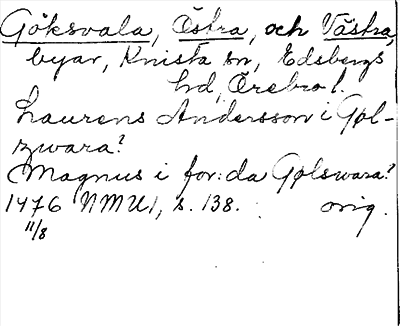 Göksvala, Östra, och Västra,
byar, Knista sn, Edsbergs
hd, Örebro l.
Laurens Andersson i Gøl-
zwara?
Magnus i for:da Gølswara?
1476 NMU 1, s. 138. orig.
11/8